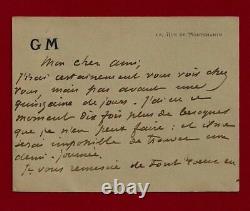 GM
RUE DE MONTCHANIN
Mon cher ami,
J'irai certainement vous voir chez
vous, mais pas avant une
quinzaine de jours. J'ai en ce
moment dix fois plus de besognes
que je n'en peux faire ; et il me
serait impossible de trouver une
demi-journée.
Je vous remercie de tout cœur en